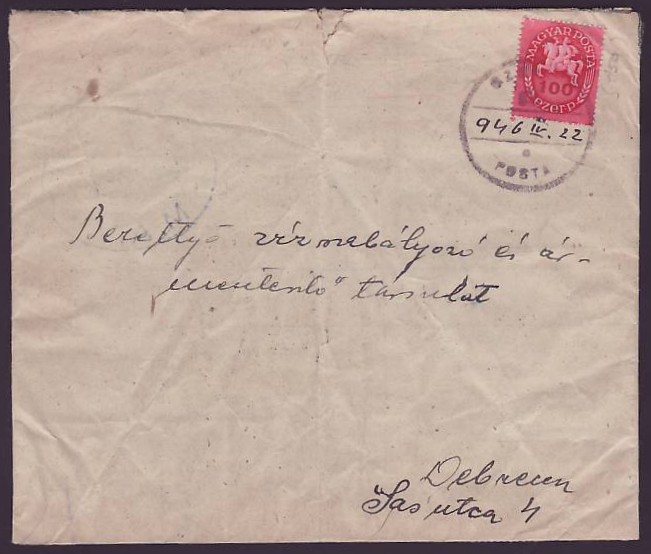 MAGYAR POSTA
100
ezerP
946 IV. 22
POSTA
Berettyó vízszabályozó és ár-
mentesítő" társulat
Debrecen
Sas utca 4